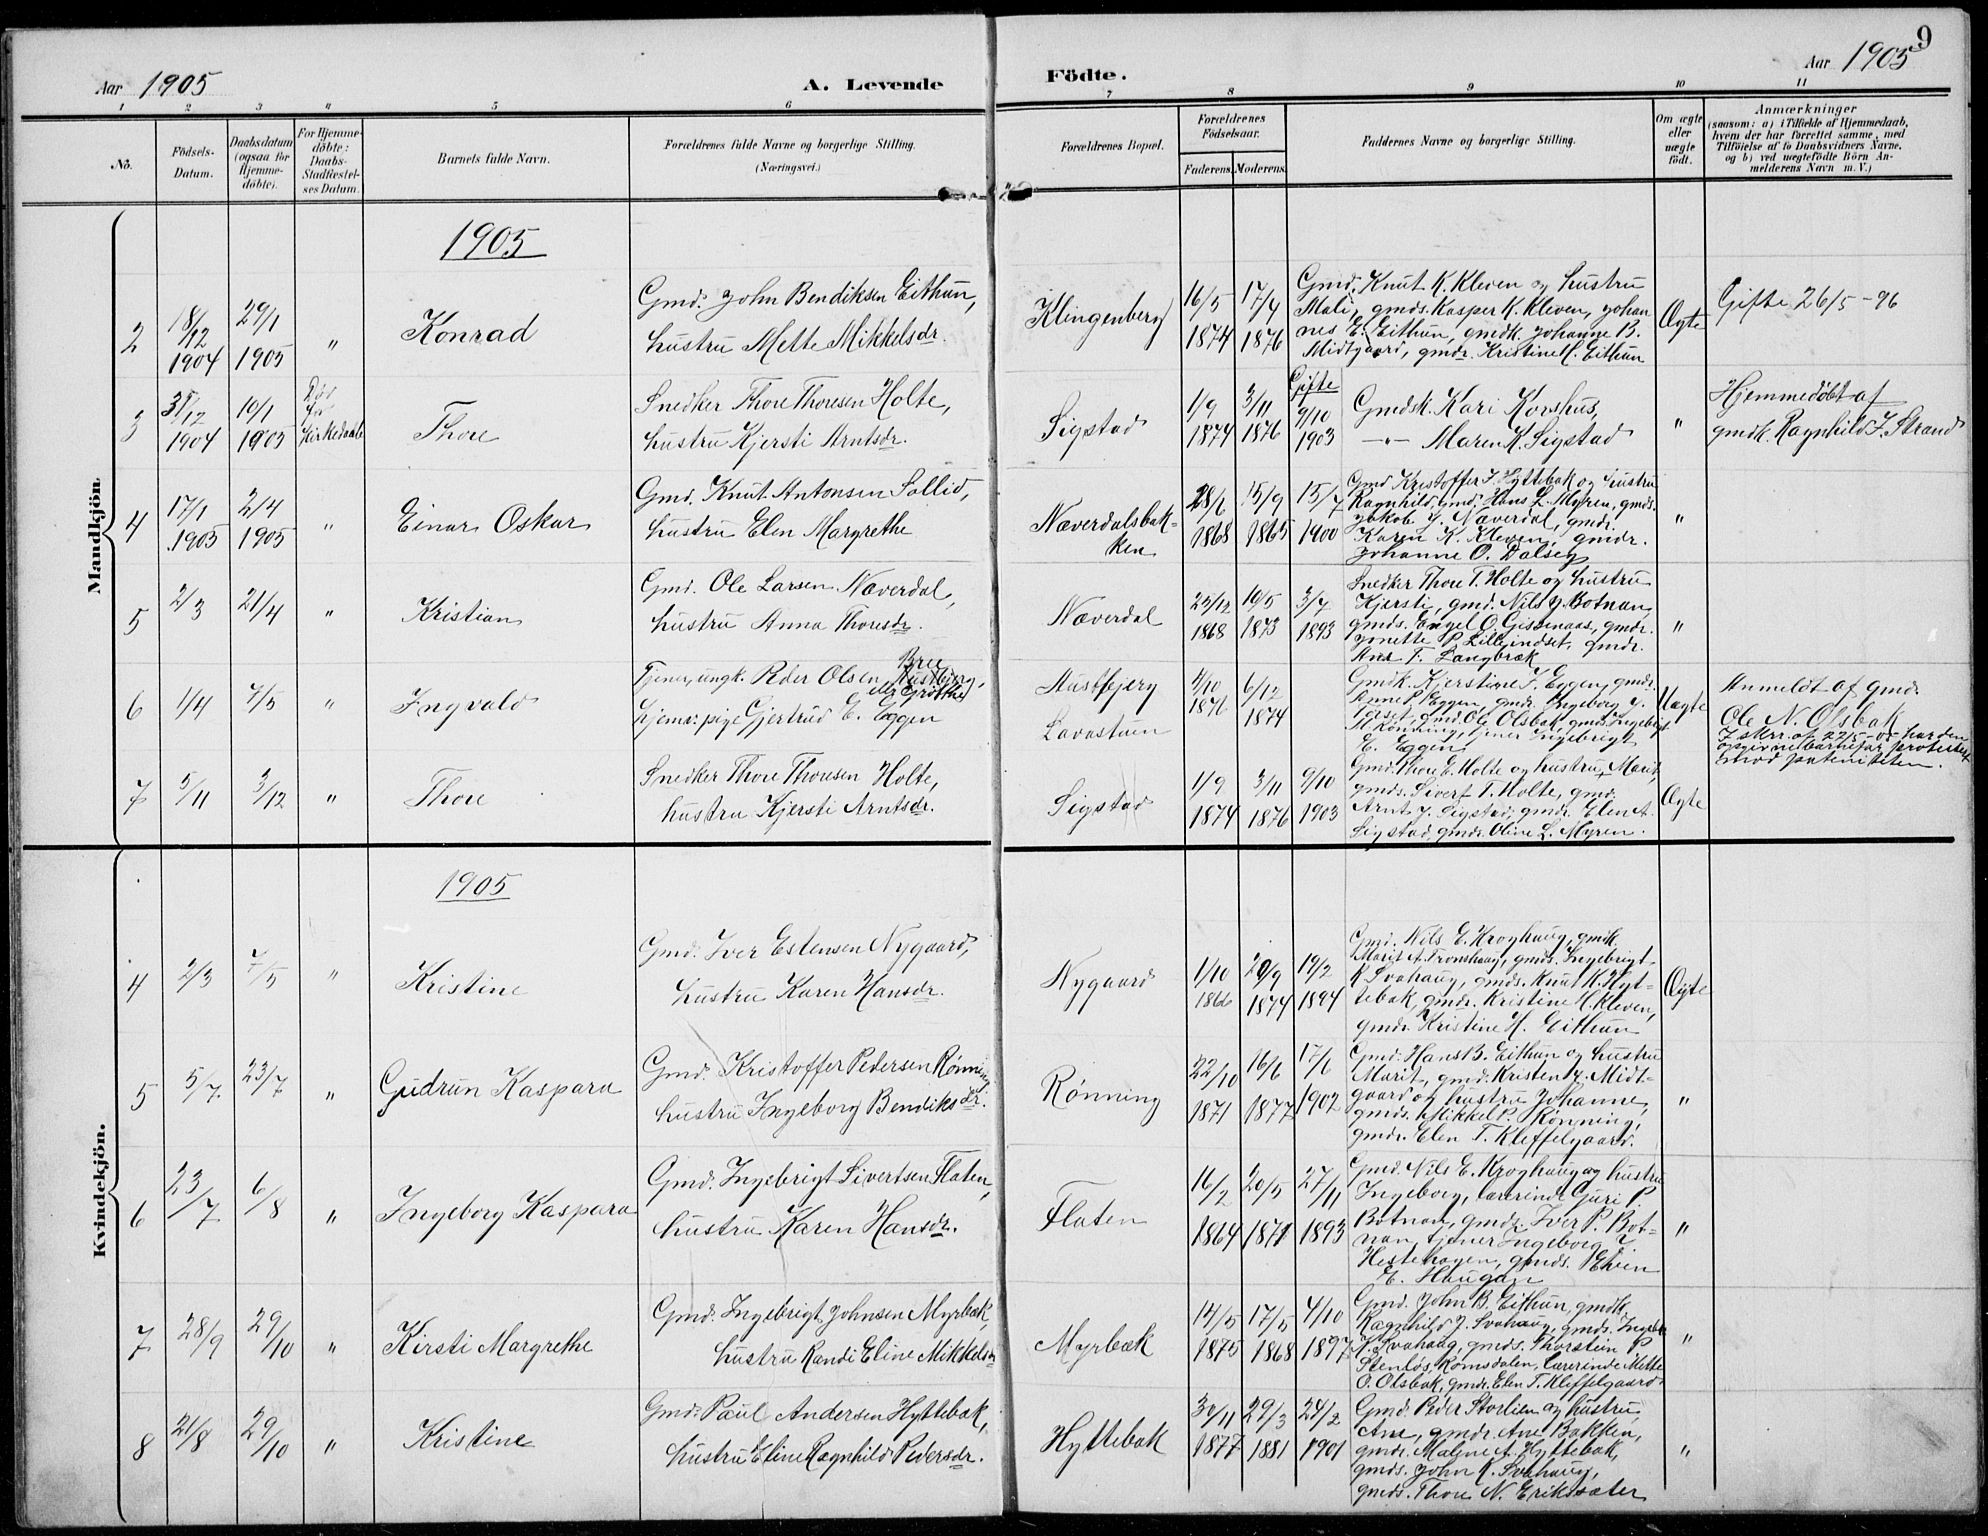 9
Aar 1905
A. Levende
Födte.
Aar 1905
1 2 3 4 5 6 7 8 9 10 11
No.
Födsels-Datum.
Daabsdatum (ogsaa for Hjemme-døbte).
For Hjemme-døbte: Daabs-Stadfæstel-ses Datum.
Barnets fulde Navn.
Forældrenes fulde Navne og borgerlige Stilling. (Næringsvei.)
Forældrenes Bopæl.
Forældrenes Födselsaar.
Faderens. Moderens.
Faddernes Navne og borgerlige Stilling.
Om ægte eller uægte födt.
Anmærkninger
(saasom: a) i Tilfælde af Hjemmedaab,
hvem der har forrettet samme, med
Tilföielse af to Daabsvidners Navne,
og b) ved uægtefödte Börn An-
melderens Navn m. V.)
Mandkjön.
1905
2 18/12 1904 29/1 1905 " Konrad
Gmd. John Bendiksen Eithun,
hustru Mette Mikkelsdr.
Klingenberg
16/5 1874 17/4 1876
Gmd. Knut K. Kleven og hustru
Mali, gmds. Kasper K. Kleven, Johan
nes E. Eithun, gmdk. Johanne B.
Midtgaard, gmdr. Kristine M. Eithun
Ægte
Gifte 26/5-96
3 31/12 1904 10/1 1905 Død før Kirkedaab Thore
Snedker Thore Thoresen Holte,
hustru Kjersti Arntsdr.
Sigstad
1/9 1874 3/11 1876 Gifte 9/10 1903
Gmdsk. Kari Korshus,
-"- Maren K. Sigstad
"
Hjemmedøbt af
gmdk. Ragnhild J. Strand
4 17/1 1905 2/4 1905 " Einar Oskar
Gmd. Knut Antonsen Sollid,
hustru Elen Margrethe
Næverdalsbak-
ken
28/6 1868 15/9 1865 15/7 1900
Gmd Kristoffer J. Hyttebak og hustru
Ragnhild, gmd. Hans L. Myren, gmds.
Jakob J. Næverdal, gmdr.
Karen K. Kleven, gmdr.
Johanne O. Dalseg
"
5 2/3 21/4 " Kristian
Gmd. Ole Larsen Næverdal,
hustru Anna Thoresdr.
Næverdal
23/12 1868 10/5 1873 3/7 1893
Snedker Thore T. Holte og hustru
Kjersti, gmd. Nils J. Botnan,
gmds. Engel O. Gissenaas, gmdr.
Jonette P. Lilleindset, gmdr.
Ane T. Langbræk
"
6 1/4 7/5 " Ingvald
Tjener, ungk. Peder Olsen Austbjerg, Bree
eller Grøtthe
hjemv. pige Gjertrud E. Eggen
Austbjerg
Lavastuen
4/10 1876 6/12 1874
Gmdk. Kjerstine T. Eggen, gmdr.
Anne P. Eggen, gmdr. Ingeborg J.
gmd. Ole Olsbak, gmds. Ingebrigt
Rønning, tjener Ingebrigt
E. Eggen
Uægte
Anmeldt af gmd.
Ole N. Olsbak
I skr. af 22/5-05 har den
opgivne barnefar protesteret
mod paterniteten.
7 5/11 3/12 " Thore
Snedker Thore Thoresen Holte,
hustru Kjersti Arntsdr.
Sigstad
1/9 1874 3/11 1876 9/10 1903
Gmd. Thore E. Holte og hustru Marit,
gmds. Sivert T. Holte, gmd.
Arnt J. Sigstad, gmdr. Elen A.
Sigstad, gmdr. Oline L. Myren.
Ægte
Kvindekjön.
1905
4 2/3 7/5 " Kristine
Gmd. Iver Estensen Nygaard,
hustru Karen Hansdr.
Nygaard
1/10 1866 20/9 1874 19/2 1894
Gmd. Nils E. Kroghaug, gmdk.
Marit A. Tronshaug, gmds. Ingebrigt
K Svahaug, gmds. Knut K. Hyt-
tebak, gmdr. Kristine H. Kleven,
gmdr. Kristine H. Eithun
Ægte
5 5/7 23/7 " Gudrun Kaspara
Gmd. Kristoffer Pedersen Rønning
hustru Ingeborg Bendiksdr.
Rønning
22/10 1871 16/6 1877 17/6 1902
Gmd. Hans B. Eithun og hustru
Marit, gmd. Kristen J. Midt-
gaard og hustru Johanne,
gmds. Mikkel P. Rønning,
gmdr. Elen T. Kleffelgaard.
"
6 23/7 6/8 " Ingeborg Kaspara
Gmd. Ingebrigt Sivertsen Flaten,
hustru Karen Hansdr.
Flaten
16/2 1864 20/5 1871 27/11 1893
Gmd. Nils E. Kroghaug og hustru
Ingeborg, lærerinde Guri P.
Botnan, gmds. Iver P. Bot-
nan, tjener Ingeborg J.
Hestehagen, gmds. Even
E. Haugan
"
7 28/9 29/10 " Kirsti Margrethe
Gmd. Ingebrigt Johnsen Myrbæk,
hustru Randi Eline Mikkelsdr
Myrbæk
14/5 1875 17/5 1868 4/10 1897
Gmd. John B. Eithun, gmdk.
Ragnhild J. Svahaug, gmds. Ingebr.
K. Svahaug, gmds. Thorstein P
Stenløs, Romsdalen, lærerinde Mette
O. Olsbak, gmdr. Elen T. Kleffelgaard
"
8 21/8 29/10 " Kristine
Gmd. Paul Andersen Hyttebak,
hustru Eline Ragnhild Pedersdr.
Hyttebak
30/11 1877 29/3 1881 24/2 1901
Gmd. Peder Storlien og hustru
Ane, gmdr. Ane Bakken,
gmdr. Malene A. Hyttebak,
gmds. John K. Svahaug,
gmds. Thore N. Eriksæter
"